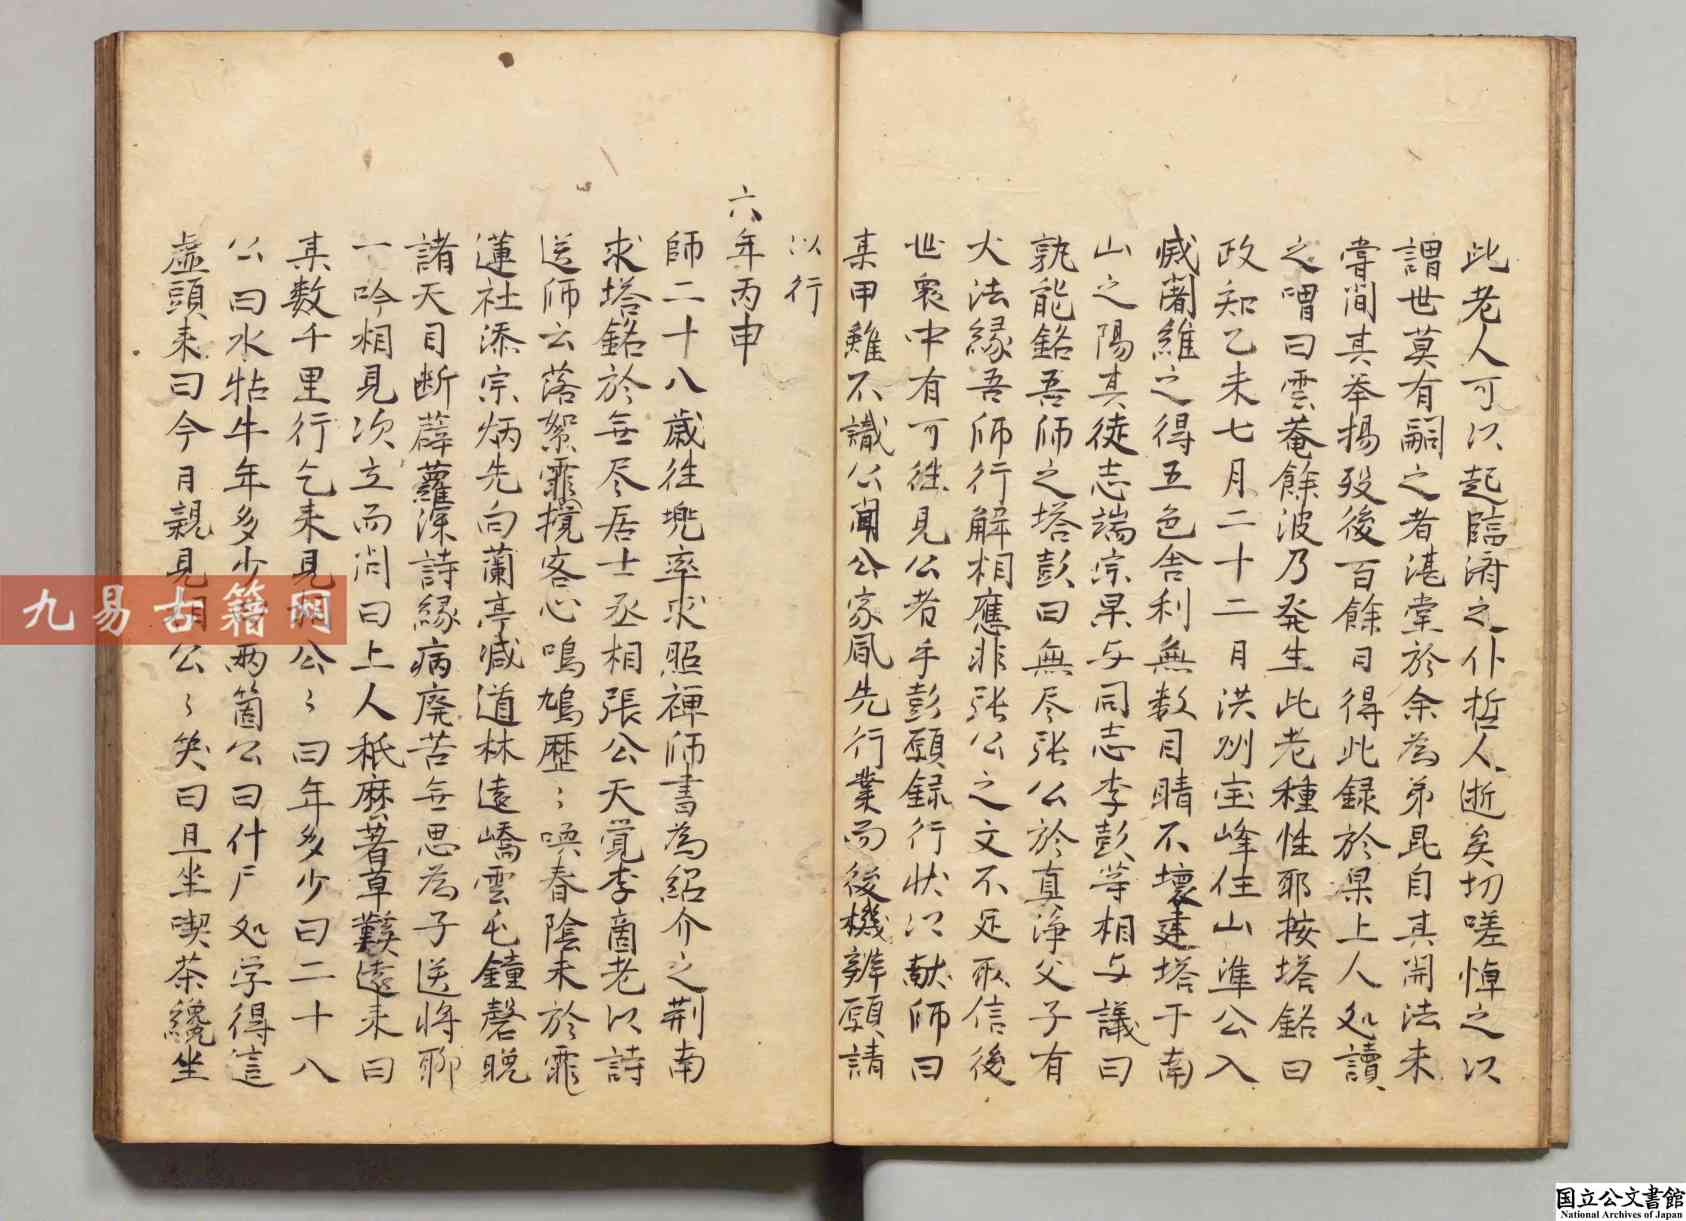 此老人可以起臨済之仆哲人逝矣切嗟悼之以
謂世莫有嗣之者湛堂於余為弟昆自其開法未
嘗聞其挙揚歿後百餘日得此録於杲上人処讀
之喟曰雲菴餘波乃発生此老種性耶按塔銘曰
政和乙未七月二十二日洪州宝峰住山準公入
滅闍維之得五色舎利無数目睛不壊建塔于南
山之陽其徒志端宗杲与同志李彭等相与議曰
孰能銘吾師之塔彭曰無尽张公於真浄父子有
大法縁吾師行解相應非张公之文不足取信後
世衆中有可往見公者乎彭願録行状以献師曰
某甲雖不識公聞公家風先行業而後機辨願請
以行
六年丙申
師二十八歳往兜率求照禅師書為紹介之荆南
求塔銘於無尽居士丞相張公天覚李商老以詩
送師云落絮霏攪客心鳴鳩歴〻喚春陰未於霏
蓮社添宗炳先向蘭亭减道林遠嶠雲屯鐘磬晚
諸天目断薜蘿深詩縁病廃苦無思為子送将聊
一吟相見次立而问曰上人秖麽著草鞋遠来曰
某数千里行乞来見相公〻曰年多少曰二十八
公曰水牯牛年多少両箇公曰什尸処学得這
虚頭来曰今日親見相公〻笑曰且坐喫茶纔坐
九易古籍网
国立公文書館
National Archives of Japan